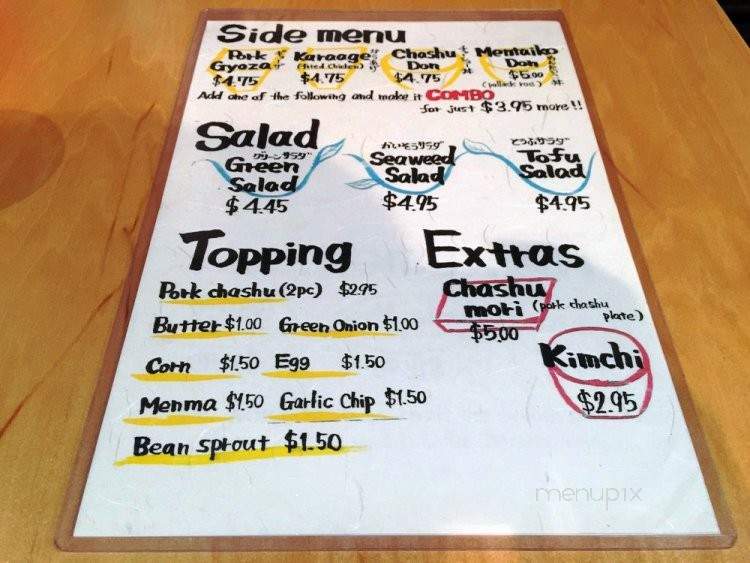 Side menu
Pork Gyoza $4.75
Karaage (fried chicken) $4.75
Chashu Don $4.75
Mentaiko Don $5.00 (pollack roe)
Add one of the following and make it COMBO
for just $3.95 more!!
Salad
グリーンサラダ
Green Salad
$4.45
かいそうサラダ
Seaweed Salad
$4.95
とうふサラダ
Tofu Salad
$4.95
Topping
Pork chashu (2pc) $2.95
Butter $1.00 Green Onion $1.00
Corn $1.50 Egg $1.50
Menma $1.50 Garlic Chip $1.50
Bean sprout $1.50
Extras
Chashu mori (pork chashu plate)
$5.00
Kimchi
$2.95
menupix